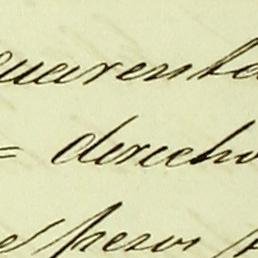 quarenta
= derecho
pesos